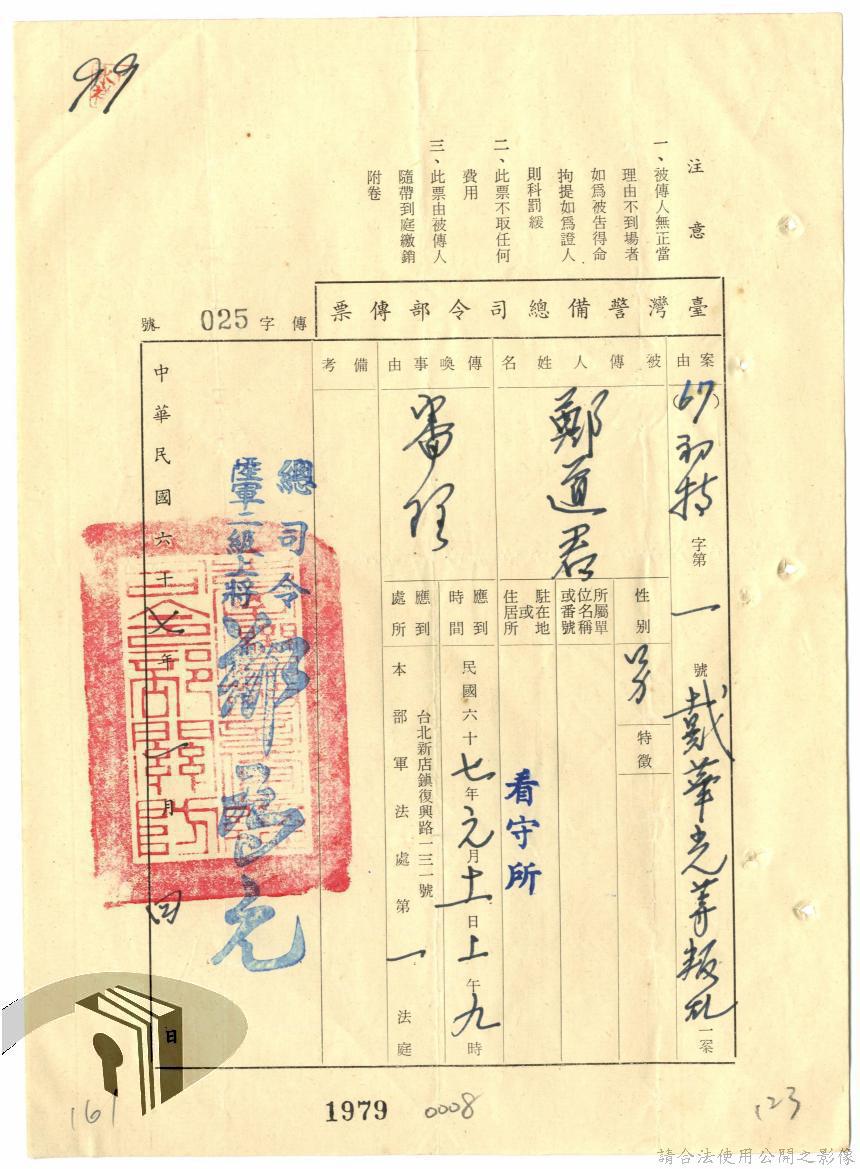 99
注意
一、被傳人無正當
理由不到場者
如為被告得命
拘提如為證人
則科罰鍰
二、此票不取任何
費用
三、此票由被傳人
隨帶到庭繳銷
附卷
臺灣警備總司令部傳票
傳字025號
案由
(67)初特字第一號戴華光等叛亂一案
被傳人姓名
鄭道君
性別
男
特徵
所屬單
位名稱
或番號
駐在地
或
住居所
看守所
傳喚事由
審理
應到
時間
民國六十七年元月十一日上午九時
應到
處所
台北新店鎮復興路一三一號
本部軍法處第一法庭
備考
總司令
陸軍二級上將
鄭為元
中華民國六十七年一月四日
161
1979
0008
123
請合法使用公開之影像